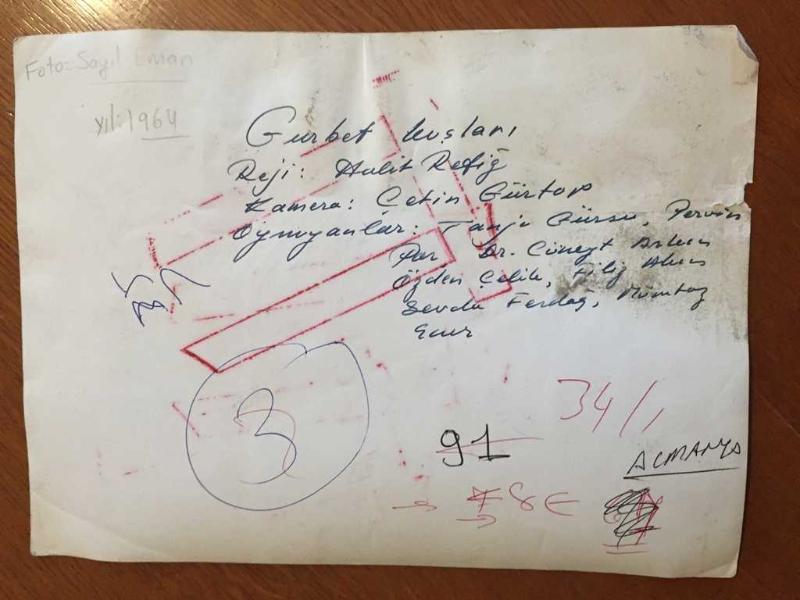 Foto: Sayıl Eman
yıl: 1964
Gurbet kuşları
Reji: Halit Refiğ
Kamera: Çetin Gürtop
Oynıyanlar: Tanju Gürsu, Pervin
Par Dr. Cüneyt Arkın
Özden Çelik, Filiz Akın
Sevda Ferdağ, Mümtaz
Ener
3
34/1
91
ALMANYA